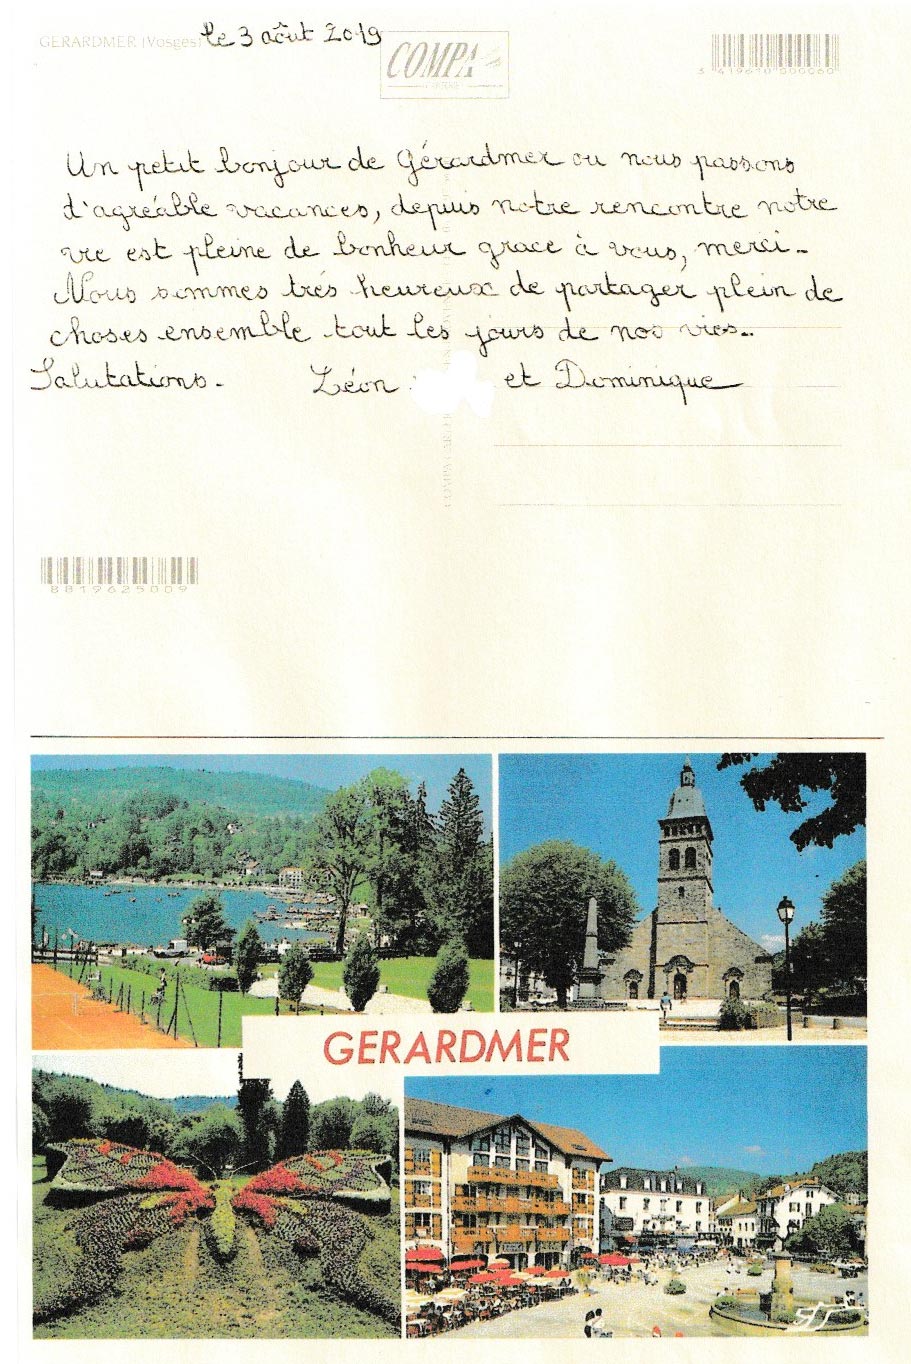 GERARDMER (Vosges) le 3 août 2019
COMPA
3 419610 000060
Un petit bonjour de Gérardmer ou nous passons
d'agréable vacances, depuis notre rencontre notre
vie est pleine de bonheur grace à vous, merci.
Nous sommes très heureux de partager plein de
choses ensemble tout les jours de nos vies..
Salutations. Léon et Dominique
8819625009
GERARDMER